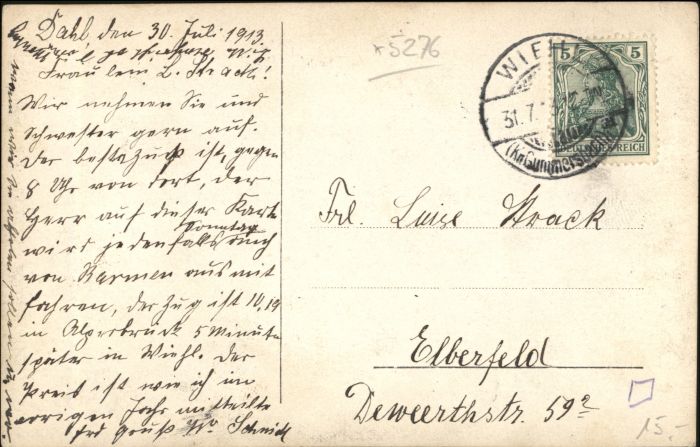 Dahl den 30. Juli 1913.
Fräulein L. Strack!
Wir nehmen Sie und
Schwester gern auf.
Der beste Zug ist, gegen
8 Uhr von dort, der
Herr auf dieser Karte
wird jedenfalls Sonntag auch
von Barmen aus mit
fahren, der Zug ist 10,19
in Alperbrück 5 Minuten
später in Wiehl. Der
Preis ist wie ich im
vorigen Jahr mitteilte
Gruß Schmidt
*5276
WIEHL
31.7.
(Kr. Gummersbach)
5 5
DEUTSCHES REICH
Frl. Luise Strack
Elberfeld
Deweerthstr. 59a
15.-